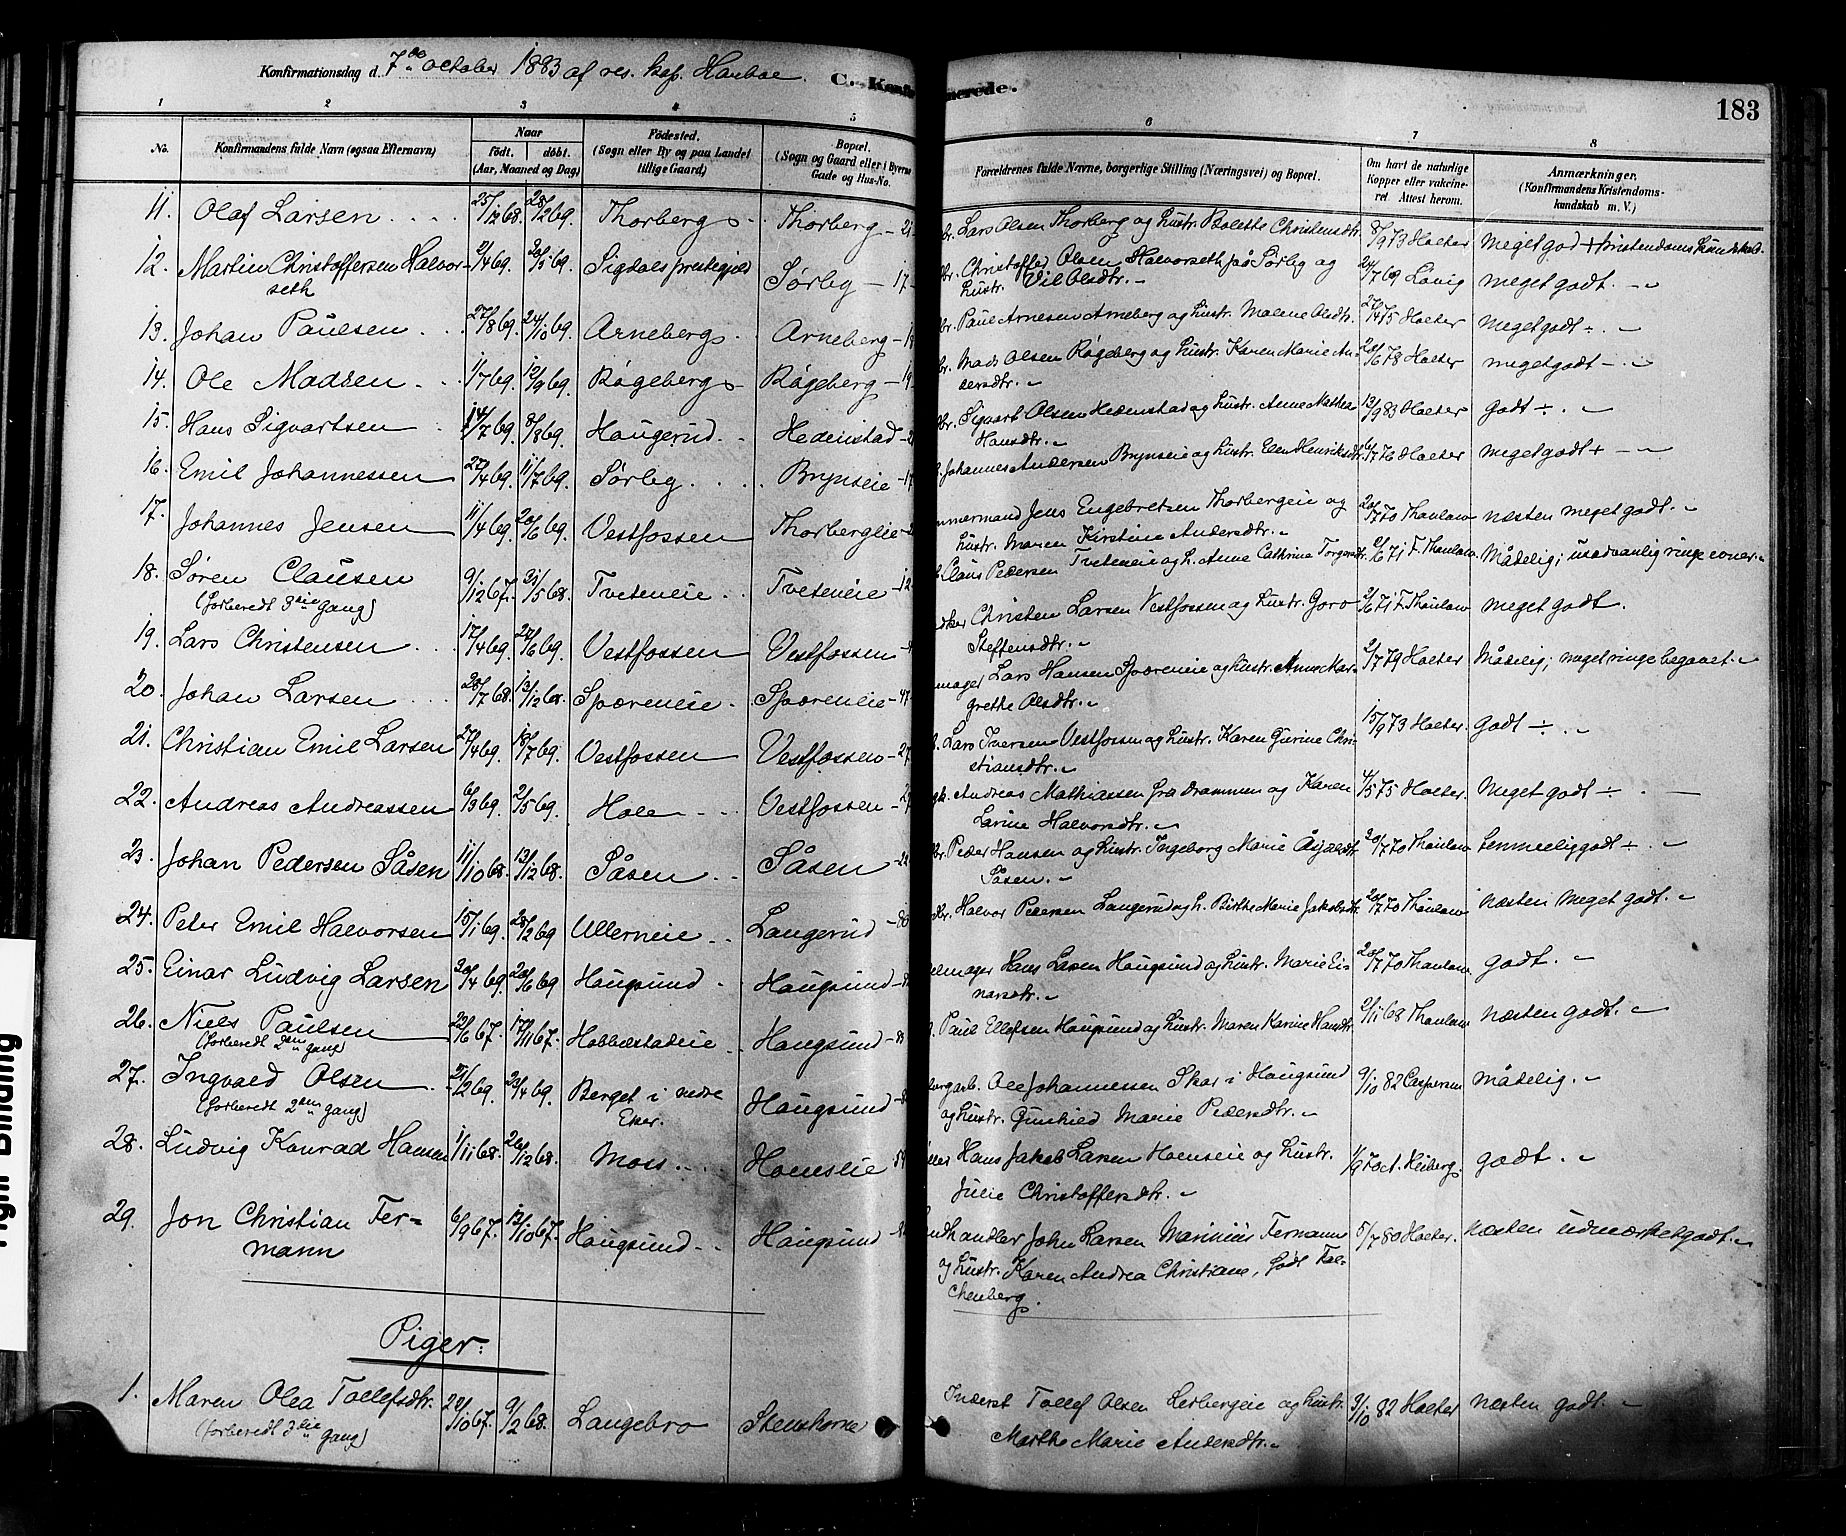 Konfirmationsdag d. 7de october 1883 af res. kap. Harboe. C. Konfirmerede. 183
1 2 3 4 5 6 7 8
No. Konfirmandens fulde Navn (ogsaa Efternavn) Naar födt. döbt. (Aar, Maaned og Dag) Födested. (Sogn eller By og paa Landet tillige Gaard) Bopæl. (Sogn og Gaard eller i Byerne Gade og Hus-No. Forældrenes fulde Navne, borgerlige Stilling (Næringsvei) og Bopæl. Om havt de naturlige Kopper eller vakcineret Attest herom. Anmærkninger. (Konfirmandens Kristendomskundskab m. V.)
11. Olaf Larsen 25/12 68. 28/2 69. Thorberg Thorberg – Lars Olsen Thorberg og hustr. Bolette Christensdtr. 8/9 73 Holter meget god + kristendomskundskab.
12. Martin Christoffersen Halvorseth 2/4 69. 20/5 69. Sigdals prestegjeld Sørby – 17 Christoffer Olsen Halvorseth på Sørby og hustr. Olsdtr. 24/7 69 Løvig meget godt. – "
13. Johan Paulsen 27/8 69. 24/10 69. Arneberg Arneberg – Paul Arnesen Arneberg og hustr. Malene Olsdtr. 27/4 75 Holter meget godt ÷ . "
14. Ole Madsen 1/7 69. 12/9 69. Røgeberg Røgeberg – 19 Mads Olsen Røgeberg og hustr. Karen Marie Andersdtr. 20/6 78 Holter meget godt – . "
15. Hans Sigvartsen 14/7 69. 8/8 69. Haugerud Hedenstad – Sigvart Olsen Hedenstad og hustr. Anne Mathea Hansdtr. 13/9 83 Holter godt ÷ . "
16. Emil Johannessen 27/4 69. 11/7 69. Sørby Brynseie – 17 Johannes Andersen Brynseie og hustr. Elen Henriksdtr. 6/7 76 Holter meget godt + – "
17. Johannes Jensen 11/4 69. 20/6 69. Vestfossen Thorbergeie – Jens Engebretsen Thorbergeie og hustr. Maren Kirstine Andersdtr. 20/7 70 Thaulow næsten meget godt. "
18. Søren Clausen (forberedt 3die gang) 9/12 67. 21/5 68. Tveteneie Tveteneie – 12 Claus Pedersen Tveteneie og h. Anne Cathrine Torgersdtr. 2/6 71 F. Thaulow. Mådelig; usædvanlig ringe evner. "
19. Lars Christensen 17/4 69. 27/6 69. Vestfossen Vestfossen – Christen Larsen Vestfossen og hustr. Goro Steffensdtr. 2/6 71 F Thaulow meget godt.
20. Johan Larsen 28/7 68. 13/12 68. Spæreneie Spæreneie – 47 Lars Hansen Spæreneie og hustr. Anne Margrethe Olsdtr. 2/7 79 Holter Mådelig; meget ringe begavet. "
21. Christian Emil Larsen 27/4 69. 18/7 69. Vestfossen Vestfossen – 27 Lars Iversen Vestfossen og hustr. Karen Gurine Christiansdtr. 15/9 73 Holter. godt ÷ . "
22. Andreas Andreassen 6/3 69. 2/5 69. Hole Vestfossen – 27 Andreas Mathiassen fra Drammen og Karen Larine Halvorsdtr. 4/5 75 Holter. Meget godt ÷ . —
23. Johan Pedersen Såsen 11/10 68. 13/12 68. Såsen Såsen – 22 Peder Hansen og hustr. Ingeborg Marie Såsen. 20/7 70 Thaulow temmelig godt ÷ . "
24. Peter Emil Halvorsen 15/1 69. 28/2 69 Ullerneie Langerud – 80 Halvor Pedersen Langerud og h. Birthe Marie Jakobsdtr. 20/7 70 Thaulow næsten meget godt. "
25. Einar Ludvig Larsen 20/4 69. 20/6 69 Haugsund Haugsund – Hans Larsen Haugsund og hustr. Marie Einarsdtr. 20/7 70 Thaulow. godt. "
26. Niels Paulsen (forberedt 2den gang) 22/6 67. 17/11 67. Hobbelstadeie Haugsund – 8 Paul Ellefsen Haugsund og hustr. Maren Karine Hansdtr. 2/11 68 Thaulow næsten godt. "
27. Ingvald Olsen (forberedt 2den gang) 21/2 69. 23/4 69. Berget i nedre Eker. Haugsund – Ole Johannessen Skar i Haugsund og hustr. Gunhild Marie Pedersdtr. 9/10 82 Caspersen mådelig. "
28. Ludvig Konrad Hansen 1/11 68. 26/12 68. Moss Holmseie – Hans Jakob Larsen Holmseie og hustr. Julie Christoffersdtr. 1/9 70 Ct. Heiberg. godt. "
29. Jon Christian Fermann 6/9 67. 13/10 67. Haugsund Haugsund – handler John Larsen Marinius Fermann og hustr. Karen Andrea Christiane, født Falchenberg. 5/7 80 Holter. næsten udmerket godt. "
Piger:
1. Maren Olea Tollefsdtr. (forberedt 3die gang) 22/10 67. 9/2 68. Langebro Stenshorne Inderst Tollef Olsen Lerbergeie og hustr. Marthe Marie Andersdtr. 3/10 82 Holter næsten godt. "